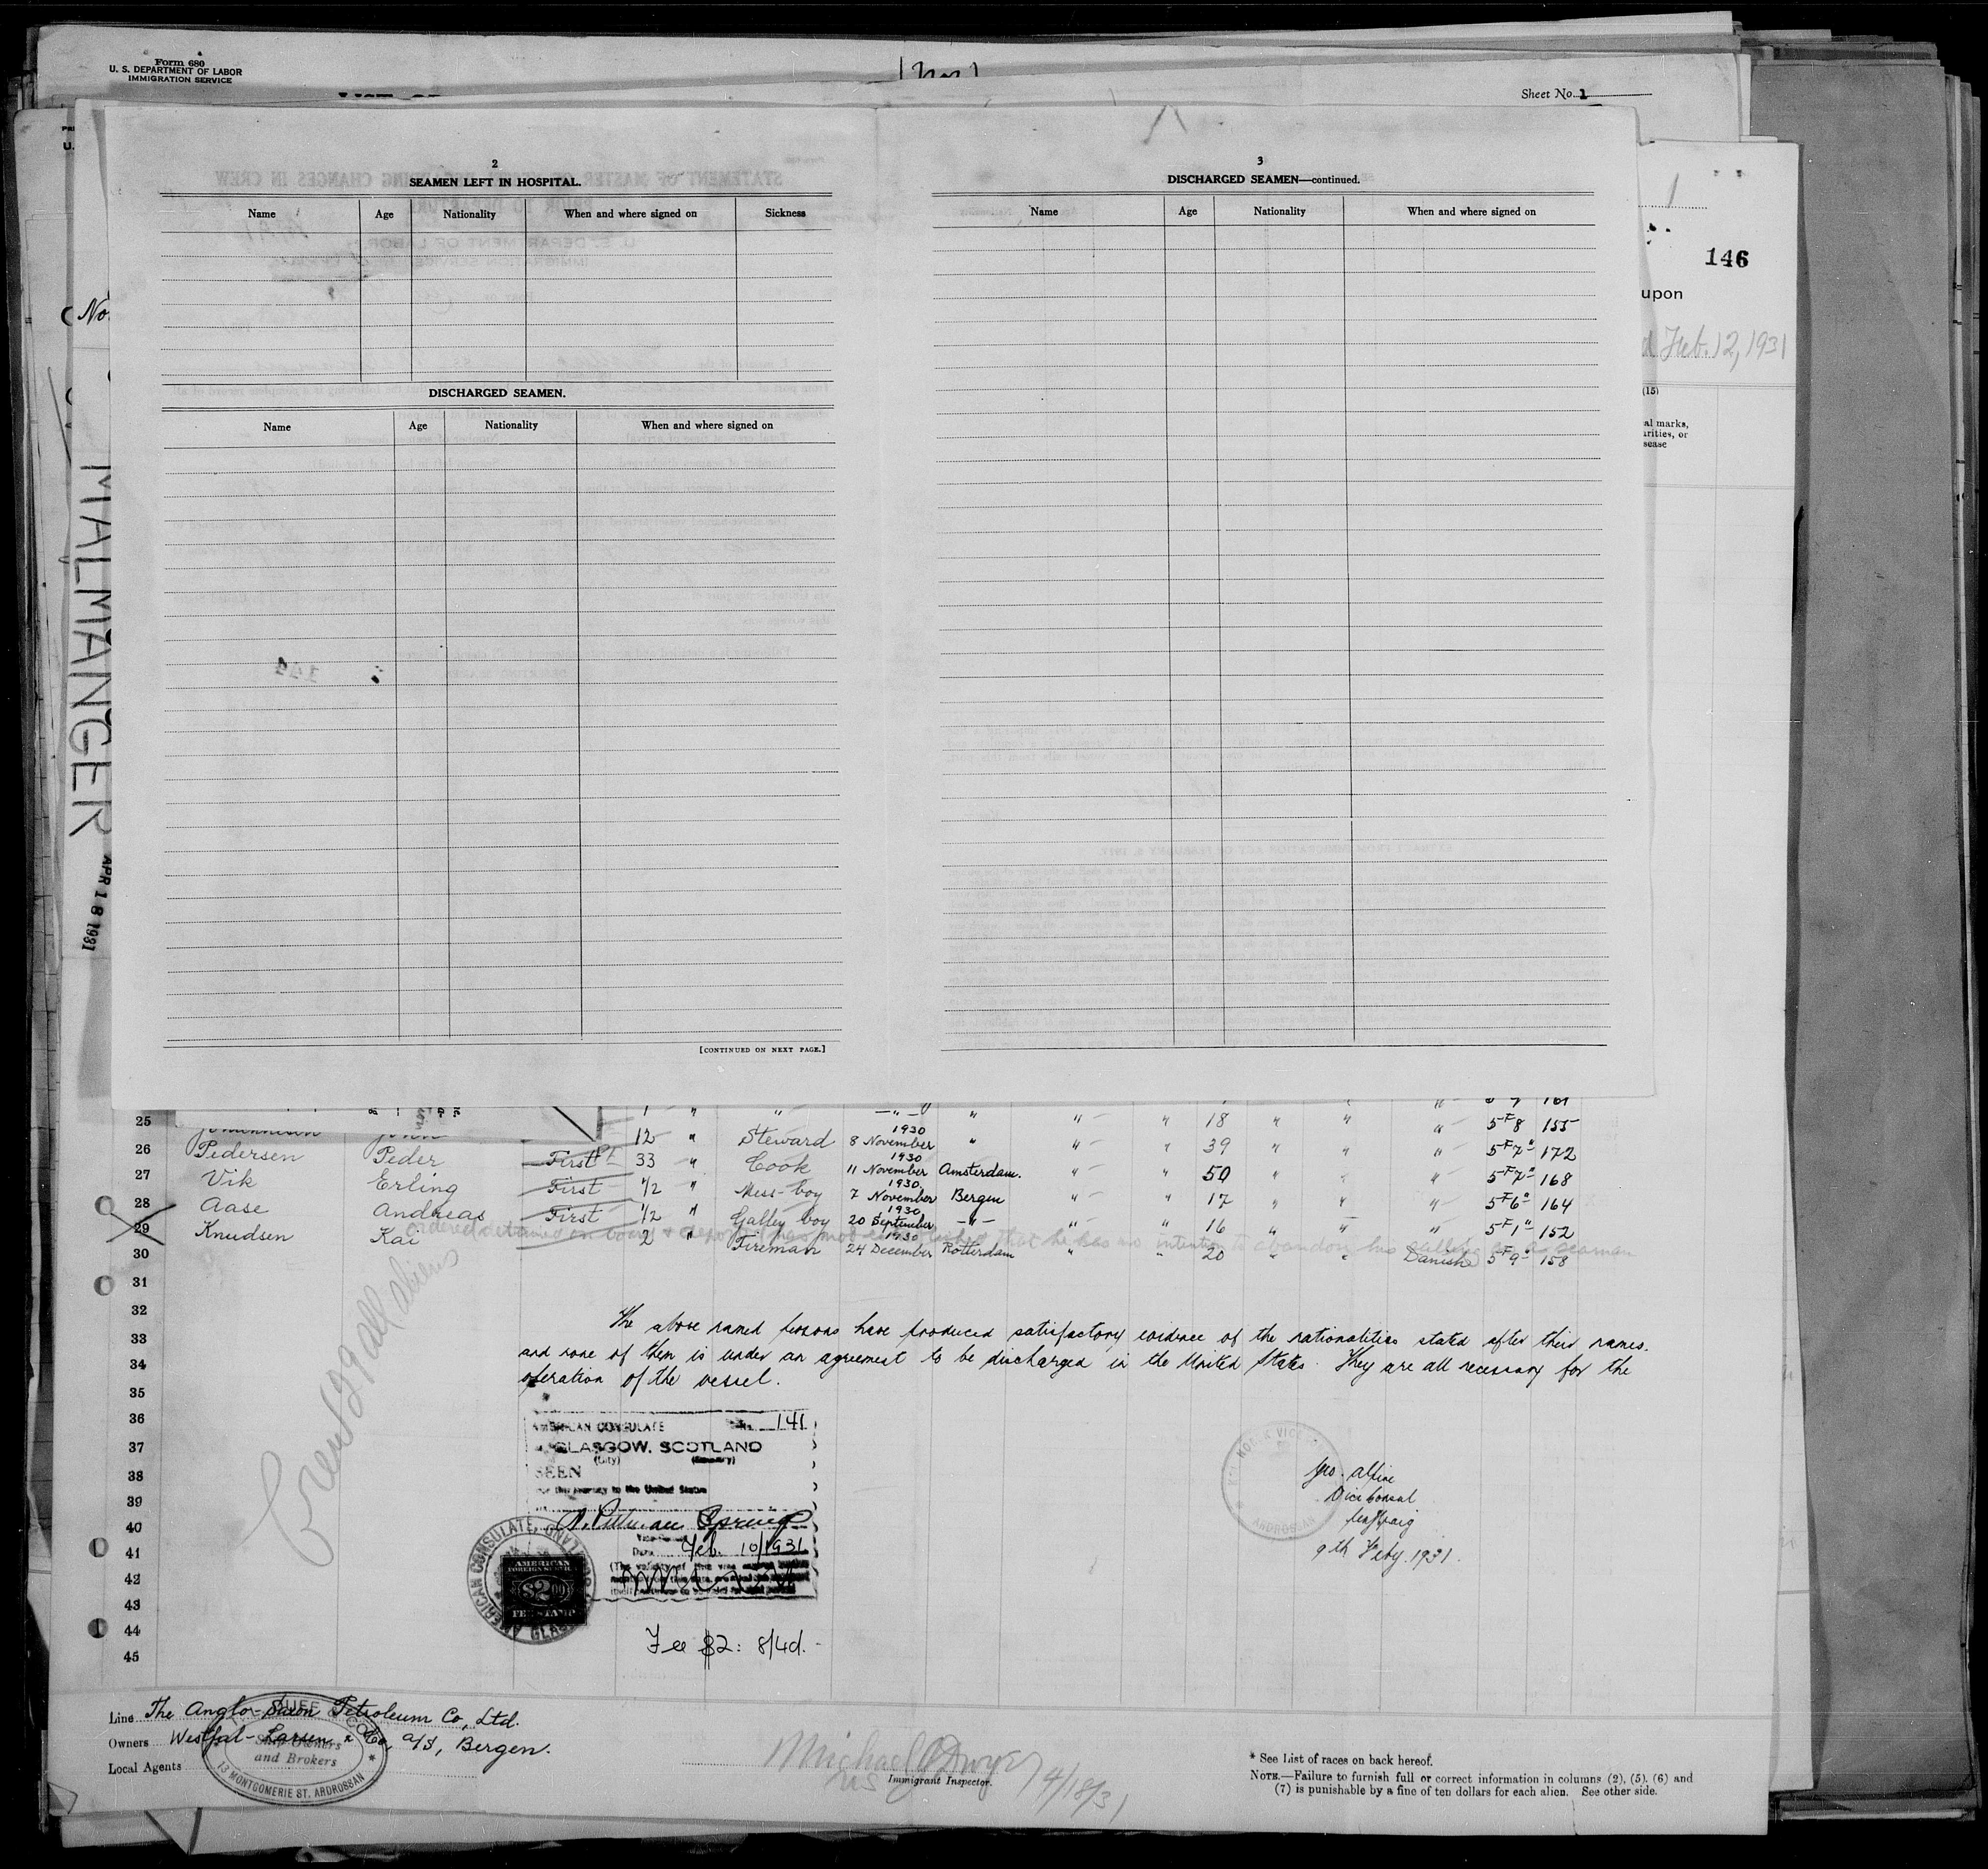 Form 680
U. S. DEPARTMENT OF LABOR
IMMIGRATION SERVICE
Sheet No. 1
146
upon
Feb. 12, 1931
(15)
al marks,
arities, or
sease
No.
MALMANGER
APR 18 1931
2
SEAMEN LEFT IN HOSPITAL.
Name Age Nationality When and where signed on Sickness
DISCHARGED SEAMEN.
Name Age Nationality When and where signed on
[CONTINUED ON NEXT PAGE.]
3
DISCHARGED SEAMEN—continued.
Name Age Nationality When and where signed on
25 " " " — " — " " — " 18 " " " 5 F 8 155
26 Johannesen John 12 " Steward 8 November 1930 " " — " 39 " " " 5 F 7" 172
27 Pedersen Peder First 33 " Cook 11 November 1930 Amsterdam. " — " 50 " " " 5 F 7" 168
28 Vik Erling First 1/2 " Mess-boy 7 November 1930 Bergen " — " 17 " " " 5 F 6" 164
29 Aase Andreas First 1/2 " Galley boy 20 September 1930 — " — " — " 16 " " " 5 F 1" 152
ordered detained on board & that he has no intention to abandon his calling as a seaman
30 Knudsen Kai 2 " Fireman 24 December 1930 Rotterdam " — " 20 " " Danish 5 F 9" 158
31
32
33
34
35
36
37
38
39
40
41
42
43
44
45
Crew 29 all aliens
The above named persons have produced satisfactory evidence of the nationalities stated after their names.
and none of them is under an agreement to be discharged in the United States. They are all necessary for the
operation of the vessel.
AMERICAN CONSULATE No. 141
GLASGOW, SCOTLAND
(City) (Country)
SEEN
For the journey to the United States
Date Feb. 10/1931
AMERICAN CONSULATE, GLASGOW, SCOTLAND
AMERICAN
FOREIGN SERVICE
$2.00
FEE STAMP
Fee $2: 8/4d.-
ARDROSSAN
Geo. Alpine
Vice Consul
9th Feby. 1931.
Line The Anglo-Saxon Petroleum Co, Ltd.
Owners Westfal-Larsen & Co, a/s, Bergen.
Local Agents
Ship Owners
and Brokers
13 MONTGOMERIE ST. ARDROSSAN
Michael O'Dwyer
US Immigrant Inspector.
4/18/31
* See List of races on back hereof.
NOTE.—Failure to furnish full or correct information in columns (2), (5), (6) and
(7) is punishable by a fine of ten dollars for each alien. See other side.